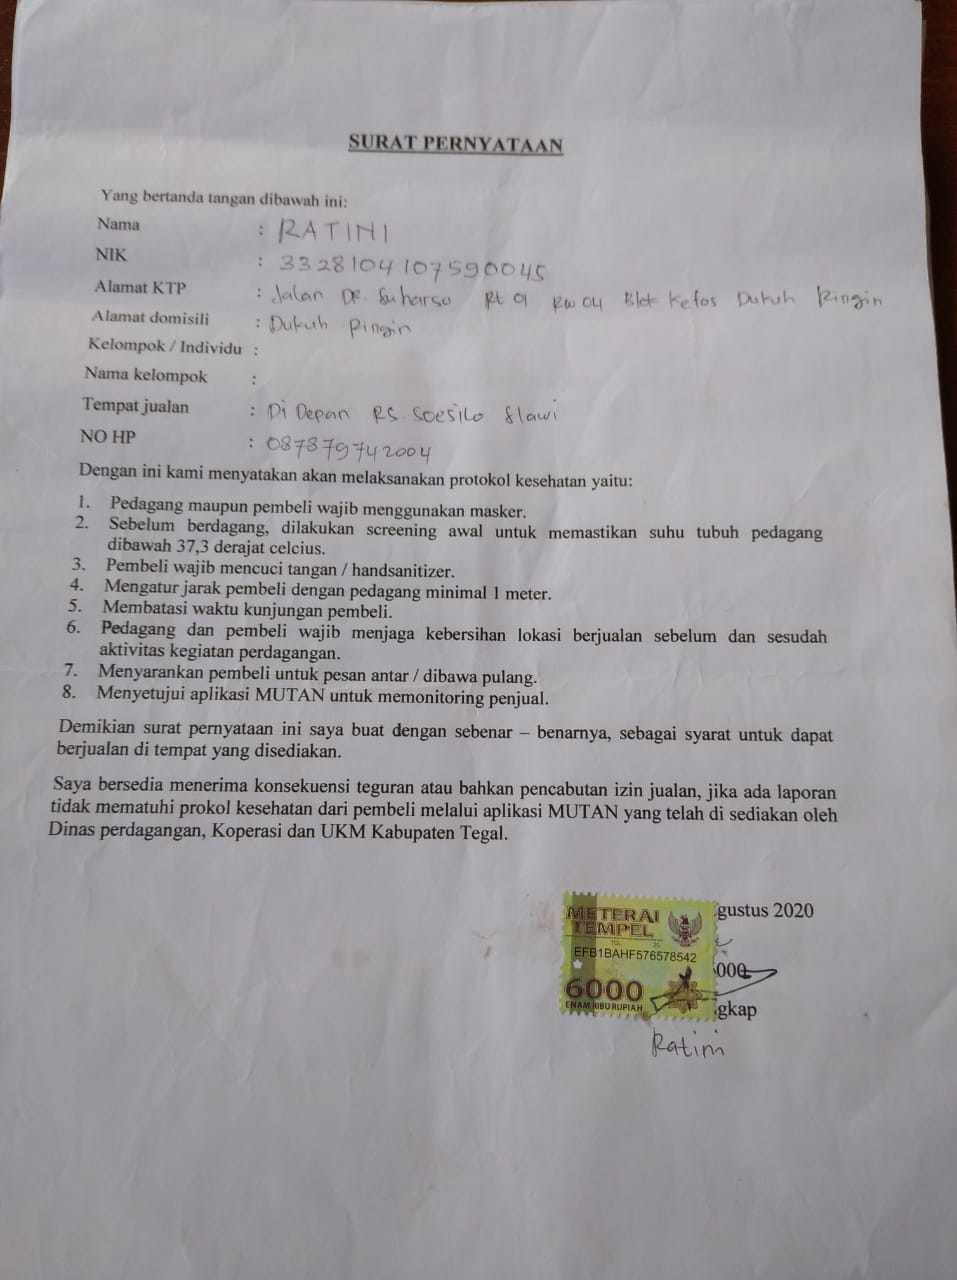 SURAT PERNYATAAN
Yang bertanda tangan dibawah ini:
Nama : RATINI
NIK : 3328104107590045
Alamat KTP : Jalan DR. Suharso Rt 01 RW 04 Blok Kefos Dukuh Ringin
Alamat domisili : Dukuh Ringin
Kelompok / Individu :
Nama kelompok :
Tempat jualan : Di Depan RS. Soesilo Slawi
NO HP : 087879742004
Dengan ini kami menyatakan akan melaksanakan protokol kesehatan yaitu:
1. Pedagang maupun pembeli wajib menggunakan masker.
2. Sebelum berdagang, dilakukan screening awal untuk memastikan suhu tubuh pedagang
dibawah 37,3 derajat celcius.
3. Pembeli wajib mencuci tangan / handsanitizer.
4. Mengatur jarak pembeli dengan pedagang minimal 1 meter.
5. Membatasi waktu kunjungan pembeli.
6. Pedagang dan pembeli wajib menjaga kebersihan lokasi berjualan sebelum dan sesudah
aktivitas kegiatan perdagangan.
7. Menyarankan pembeli untuk pesan antar / dibawa pulang.
8. Menyetujui aplikasi MUTAN untuk memonitoring penjual.
Demikian surat pernyataan ini saya buat dengan sebenar – benarnya, sebagai syarat untuk dapat
berjualan di tempat yang disediakan.
Saya bersedia menerima konsekuensi teguran atau bahkan pencabutan izin jualan, jika ada laporan
tidak mematuhi prokol kesehatan dari pembeli melalui aplikasi MUTAN yang telah di sediakan oleh
Dinas perdagangan, Koperasi dan UKM Kabupaten Tegal.
gustus 2020
METERAI
TEMPEL
TGL 20
EFB1BAHF576578542
000
6000
ENAM RIBU RUPIAH
gkap
Ratini